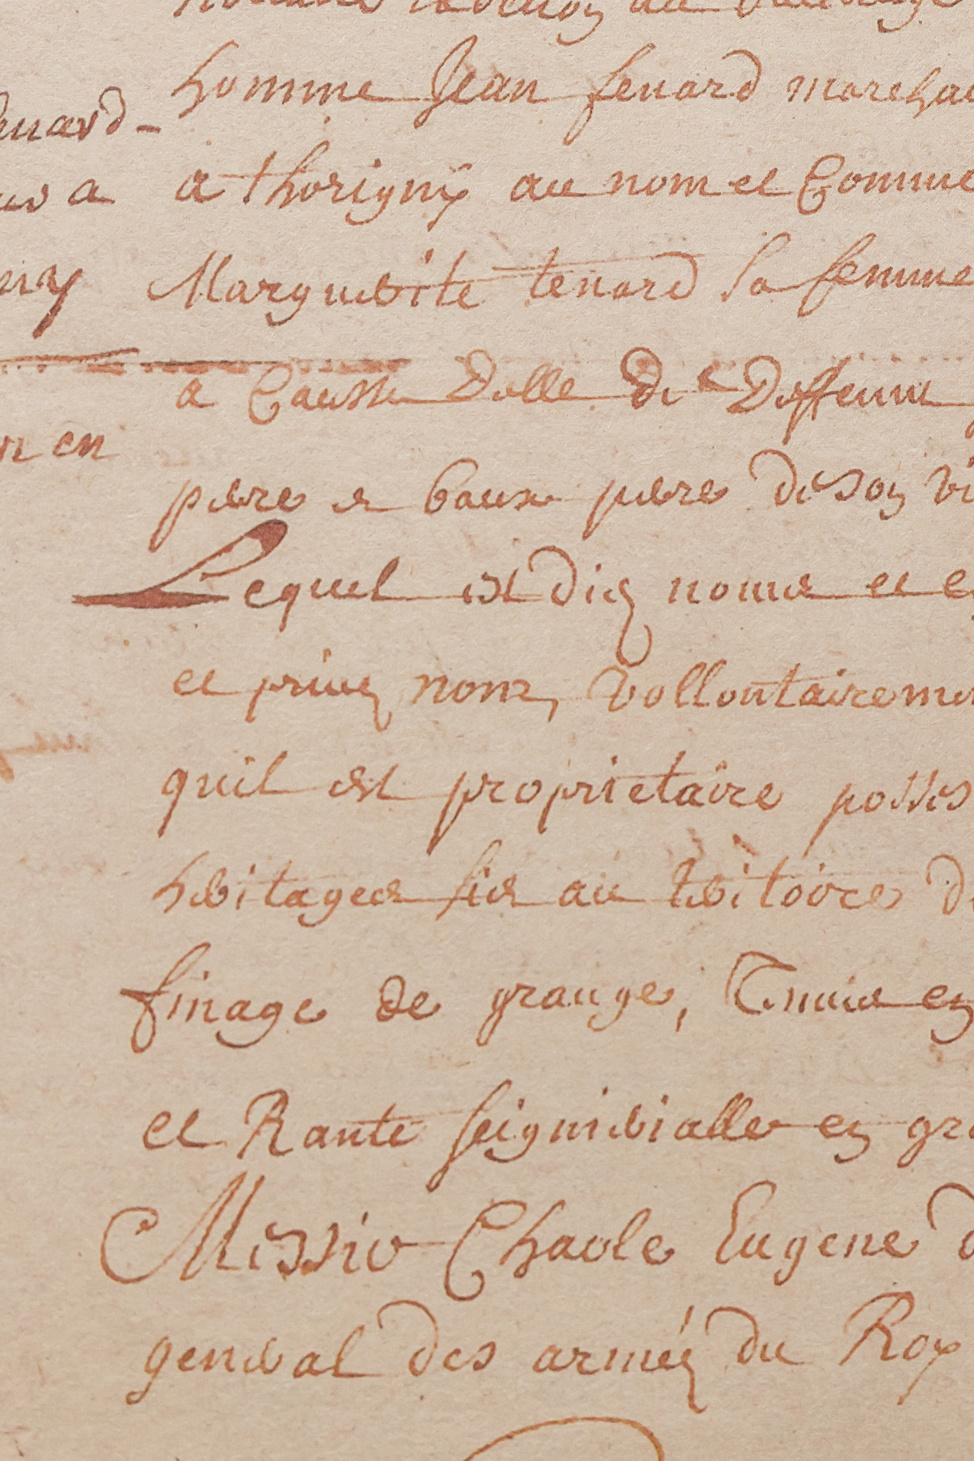 homme Jean fenard marchan
a thorigny au nom et Comme
Marguerite tenard sa femme
a Causse delle de deffunt
pere et baux pere de son vi
Lequel est dicq noms et e
et privez noms, vollontairemen
quil est proprietaire posses
heritages sis au teritoire de
finage de grange, Tenus en
et Rante seigneurialle en gra
Messire Charle Eugene d
general des armées du Roy
enard-
a
ny
en